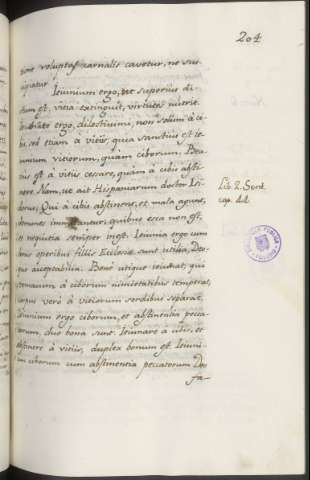 204
tione voluptas carnalis cavetur, ne sus
Ieiunium ergo, vt superius di
ctum est, vitia extinguit, virtutes nutrit.
ergo, dilectissimi, non solum à ci
bis, sed etiam à vitijs, quia sanctius est Ie
iunium vitiorum, quàm ciborum. Bea
tius est à vitijs cessare, quàm à cibis absti
nere. Nam, ut ait Hispaniarum doctor Isi
dorus, Qui à cibis abstinent, et malè agunt,
quibus esca non est,
et nequitia semper inest. Ieiunia ergo cum
bonis operibus filijs Ecclesiæ sunt utilia, Deo
que acceptabilia. Bene utique ieiunat, qui
à ciborum nimietatibus temperat,
corpus verò à vitiorum sordibus separat.
Ieiunium ergo ciborum, et abstinentia pecca
torum, duo bona sunt. Ieiunare à cibis, et
abstinere à vitijs, duplex bonum est. Ieiuni
um ciborum cum abstinentia peccatorum De
fa-
Lib. 2. Sent.
cap. 44.